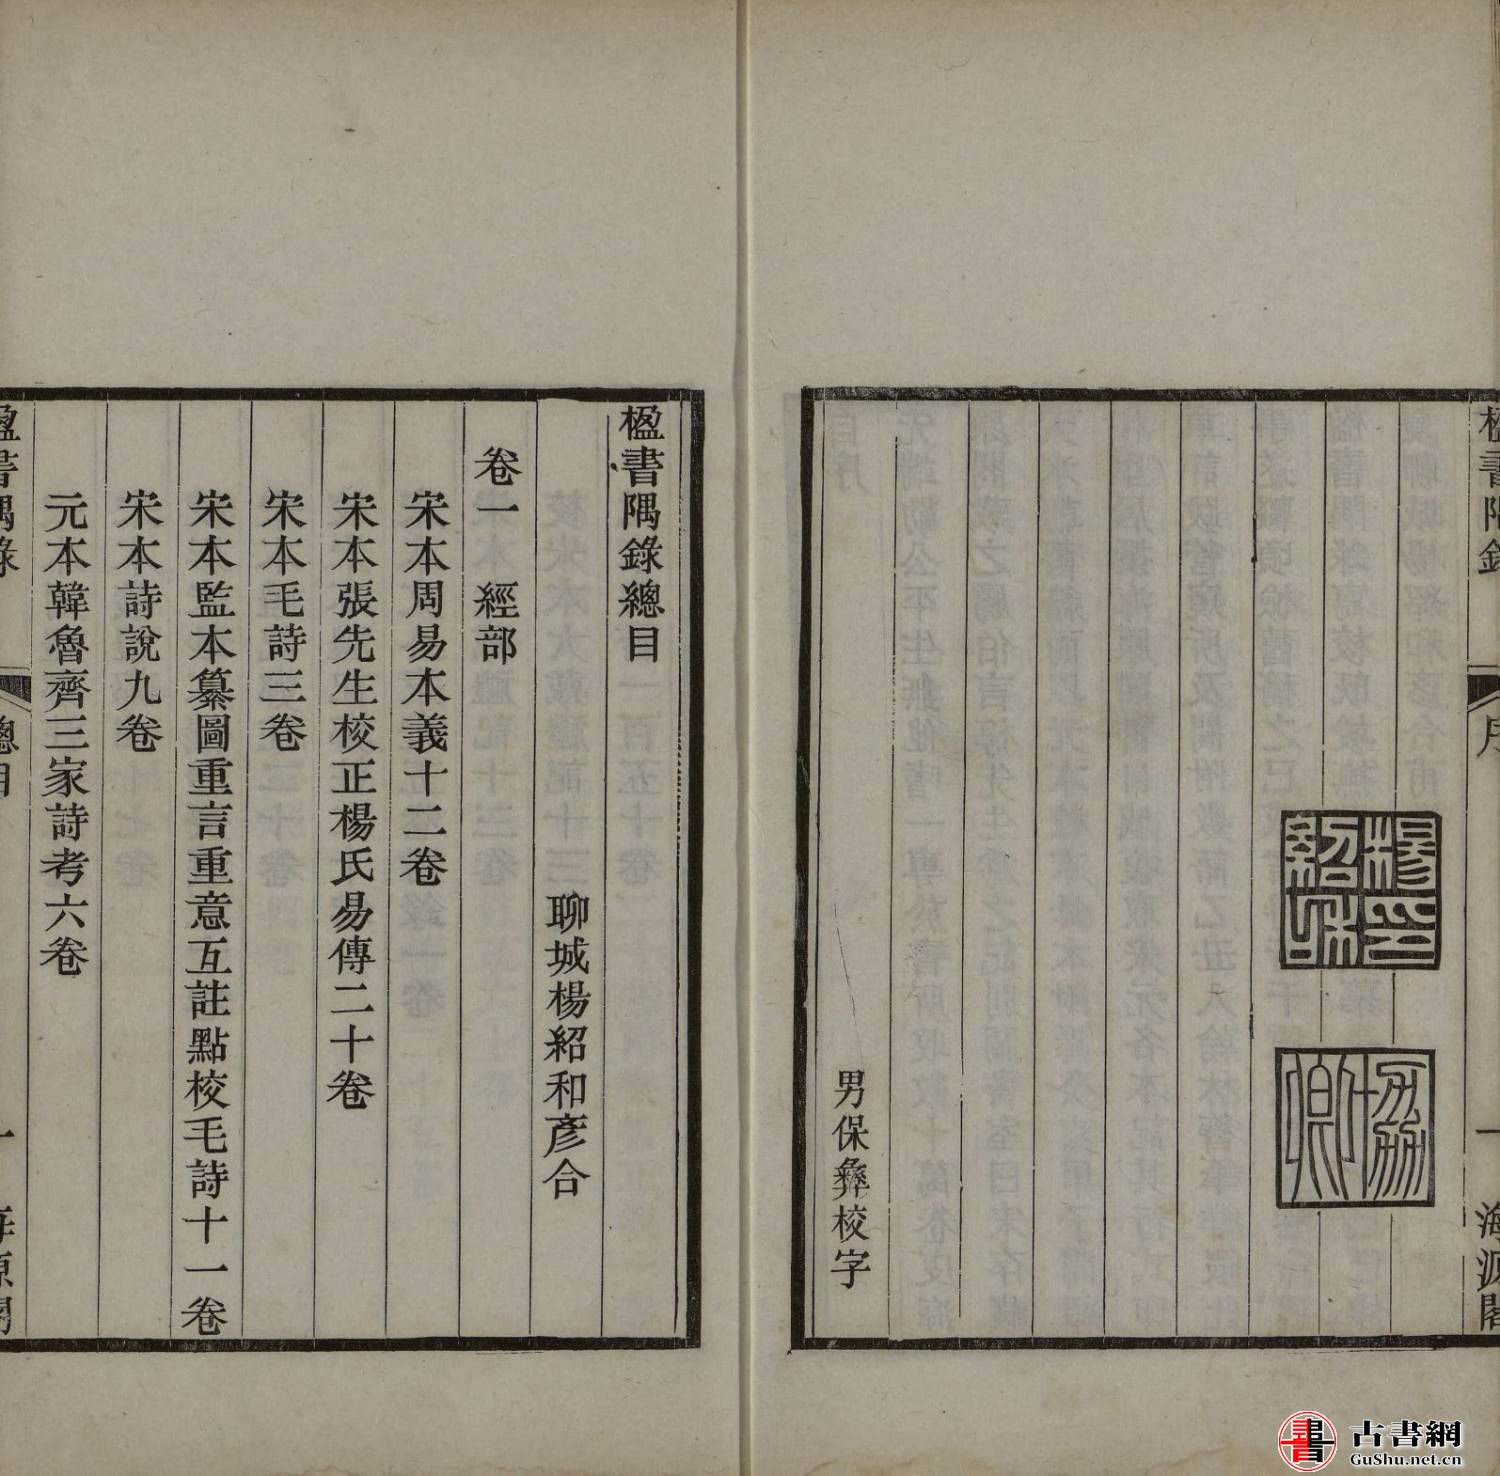 楹書隅錄
序
一
海源閣
楊紹和印
協卿
男保彝校字
楹書隅錄總目
聊城楊紹和彥合
卷一　經部
宋本周易本義十二卷
宋本張先生校正楊氏易傳二十卷
宋本毛詩三卷
宋本監本纂圖重言重意互註點校毛詩十一卷
宋本詩說九卷
元本韓魯齊三家詩考六卷
楹書隅錄
總目
一
海源閣
古書網
GuShu.net.cn